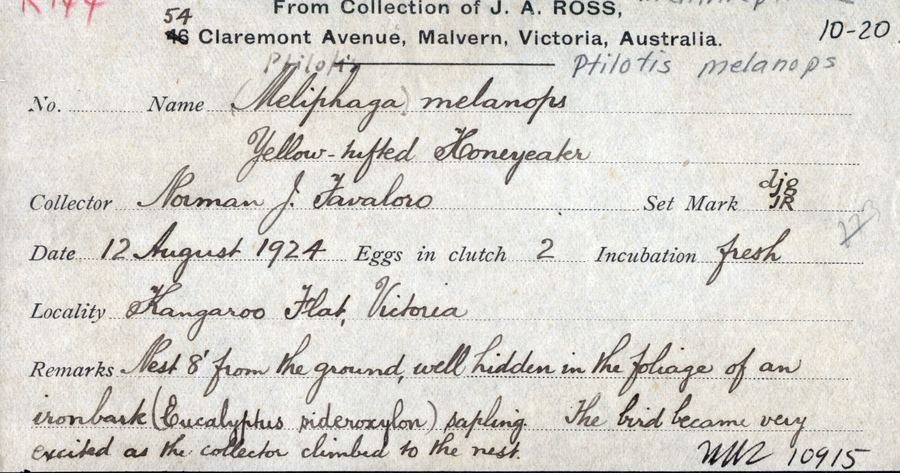 From Collection of J. A. ROSS,
54
46 Claremont Avenue, Malvern, Victoria, Australia.
10-20
Ptilotis Ptilotis melanops
No. Name (Meliphaga) melanops
Yellow-tufted Honeyeater
Collector Norman J. Favaloro Set Mark djg JR
Date 12 August 1924 Eggs in clutch 2 Incubation fresh
Locality Kangaroo Flat, Victoria
Remarks Nest 8' from the ground, well hidden in the foliage of an
ironbark (Eucalyptus sideroxylon) sapling. The bird became very
excited as the collector climbed to the nest.
10915